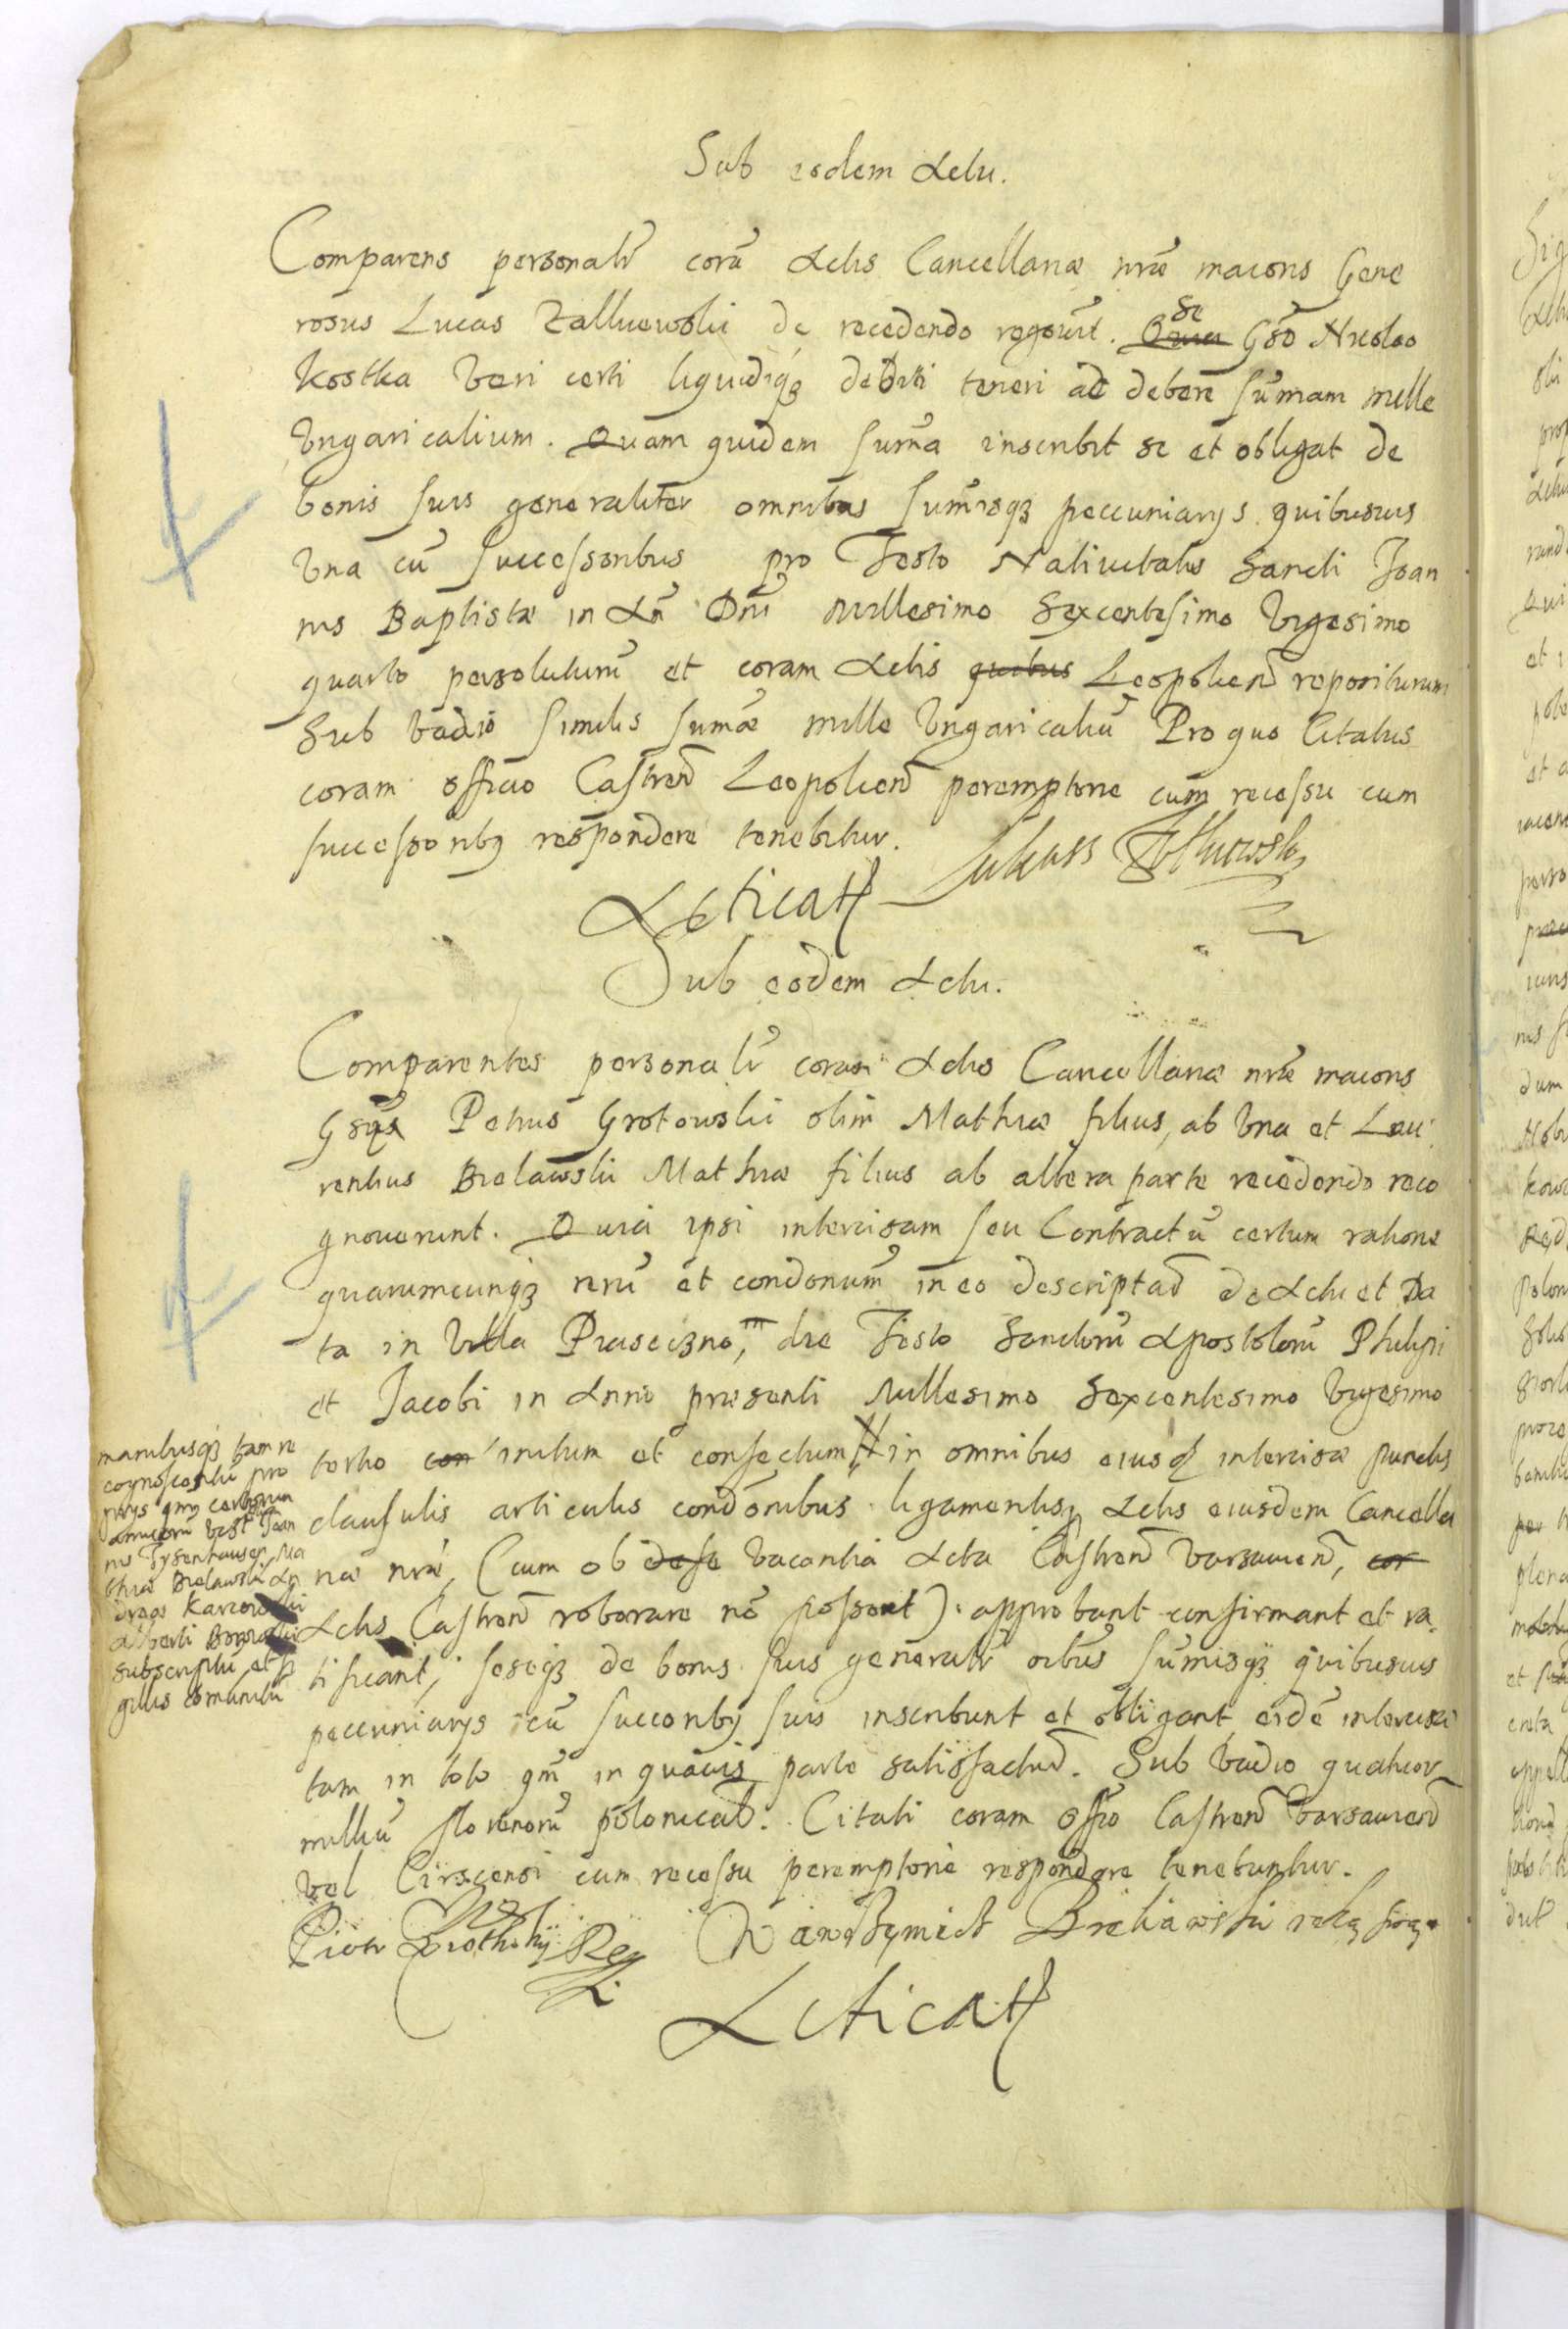 Sub eodem Actu.
Comparens personalr̃ corã Actis Cancellariæ nræ̃ maioris Gene
rosus Lucas Zolkiewski de recedendo recogvit. Quia se Gsõ Nicolao
Kostka veri certi liquidiq̃ debiti teneri ac debere sum̃am mille
Vngaricalium. Quam quidem sum̃a inscribit se et obligat de
bonis suis generaliter omnibus sum̃isq̃ peccuniarys quibusuis
vna cũ successoribus pro Festo Natiuitatis Sancti Joan
nis Baptistæ in Añ Dnĩ Millesimo Sexcentesimo Vigesimo
quarto persoluturũ et coram Actis quibus Leopolien̄ repositurum
sub vadio similis sumæ mille Vngaricaliũ Pro quo Citatus
coram officio Castren̄ Leopolien̄ peremptorie cum recessu cum
successoribꝫ respondere tenebitur. Lukasz
Acticatt
Sub eodem Actu.
Comparentes personalr̃ coram Actis Cancellariæ nræ̃ maioris
Petrus Grotowski olim Mathiæ filius, ab vna et Lau
rentius Bielawski Mathiæ filius ab altera parte recedendo reco
gnouerunt. Quia ipsi intercisam seu Contractũ certum ratione
quarumcunqꝫ rerũ et condonum̃ in eo descriptaꝝ de Actu et Da
ta in Villa die Festo Sanctorũ Apostolorũ Philipi
et Jacobi in Anno præsenti Millesimo Sexcentesimo Vigesimo
tertio con initum et confectum in omnibus eiusꝗ intercisæ punctis
clausulis articulis condõnibus ligamentisꝗ Actis eiusdem Cancella
riæ nræ̃, (cum ob dese vacantia Acta Castren̄ Varsauien̄, cor
Actis Castren̄ roborare nõ possent) approbant confirmant et ra
tificant, seseqꝫ de bonis suis generalr̃ oĩbus sum̃isqꝫ quibusuis
peccuniarys cũ succoribꝫ suis inscribunt et obligant eidẽ intercisæ
tam in toto qm̃ in quauis parte satisfactuꝝ. Sub vadio quatuor
milliũ florenorũ polonicaliũ. Citati coram Offĩo Castren̄ Varsauien̄
vel Cirscensi cum recessu peremptorie respondere tenebuntur.
manibusqꝫ tam re
cognoscentiũ pro
prys qm̃ certorum
amicorũ
nis Tysenhausen, Ma
thiæ Bielawski An
dreæ
Alberti
subscriptũ et si
gillis comunitũ
Piotr Wawrzyniecz Bieliawski reką swą
Acticatt